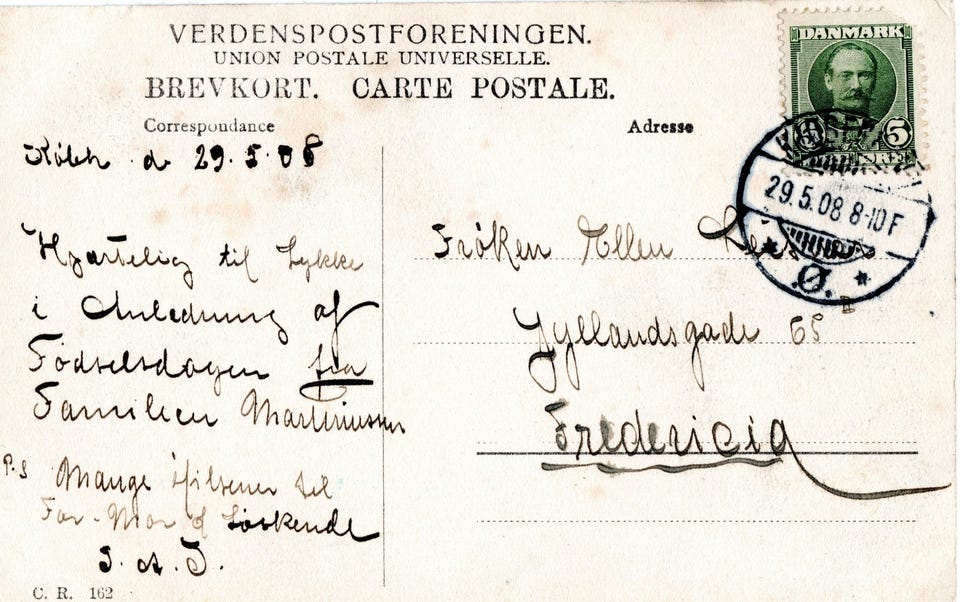 VERDENSPOSTFORENINGEN.
UNION POSTALE UNIVERSELLE.
BREVKORT. CARTE POSTALE.
Correspondance
Adresse
DANMARK
5 5
29.5.08 8-10 F
Ø.
d 29.5.08
Hjærtelig til Lykke
i Anledning af
Fødselsdagen fra
Familien Martinussen
P.S Mange Hilsener til
Far. Mor og Søskende
Frøken Ellen
Jyllandsgade 65
Fredericia
C. R. 162